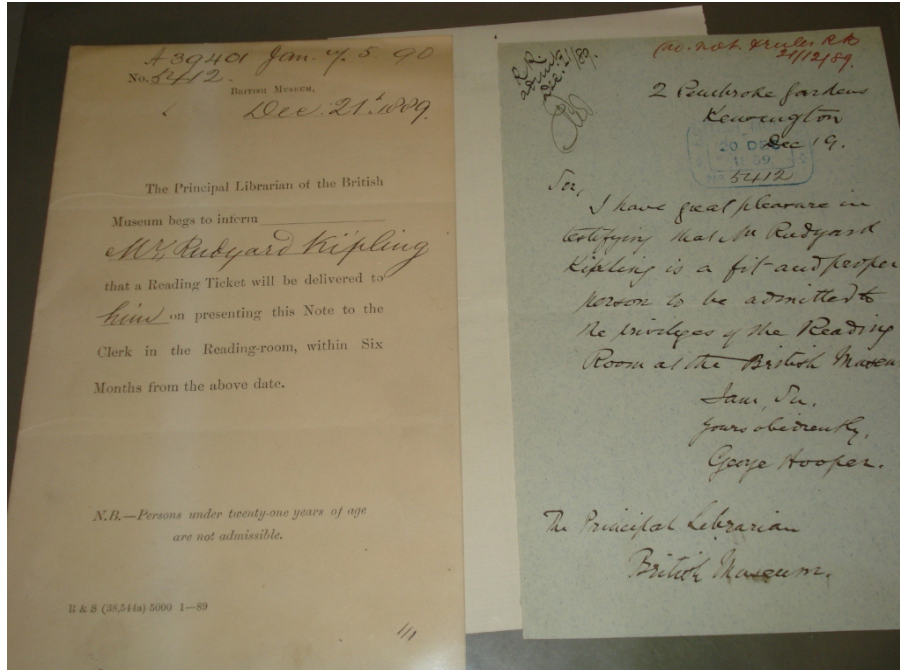 A39401 Jan. 7. 5. 90
No. 5412.
British Museum,
Dec. 21st 1889.
The Principal Librarian of the British
Museum begs to inform
Mr. Rudyard Kipling
that a Reading Ticket will be delivered to
him on presenting this Note to the
Clerk in the Reading-room, within Six
Months from the above date.
N.B.—Persons under twenty-one years of age
are not admissible.
B & S (38,544a) 5000 1—89
1/1
R.R.
no. not. & rules RK
21/12/89.
2 Pembroke Gardens
Kensington
Dec 19.
20 DEC
1889
5412
Sir,
I have great pleasure in
testifying that Mr Rudyard
Kipling is a fit and proper
person to be admitted to
the privileges of the Reading
Room at the British Museum
I am, Sir,
Yours obediently,
George Hooper.
The Principal Librarian
British Museum.